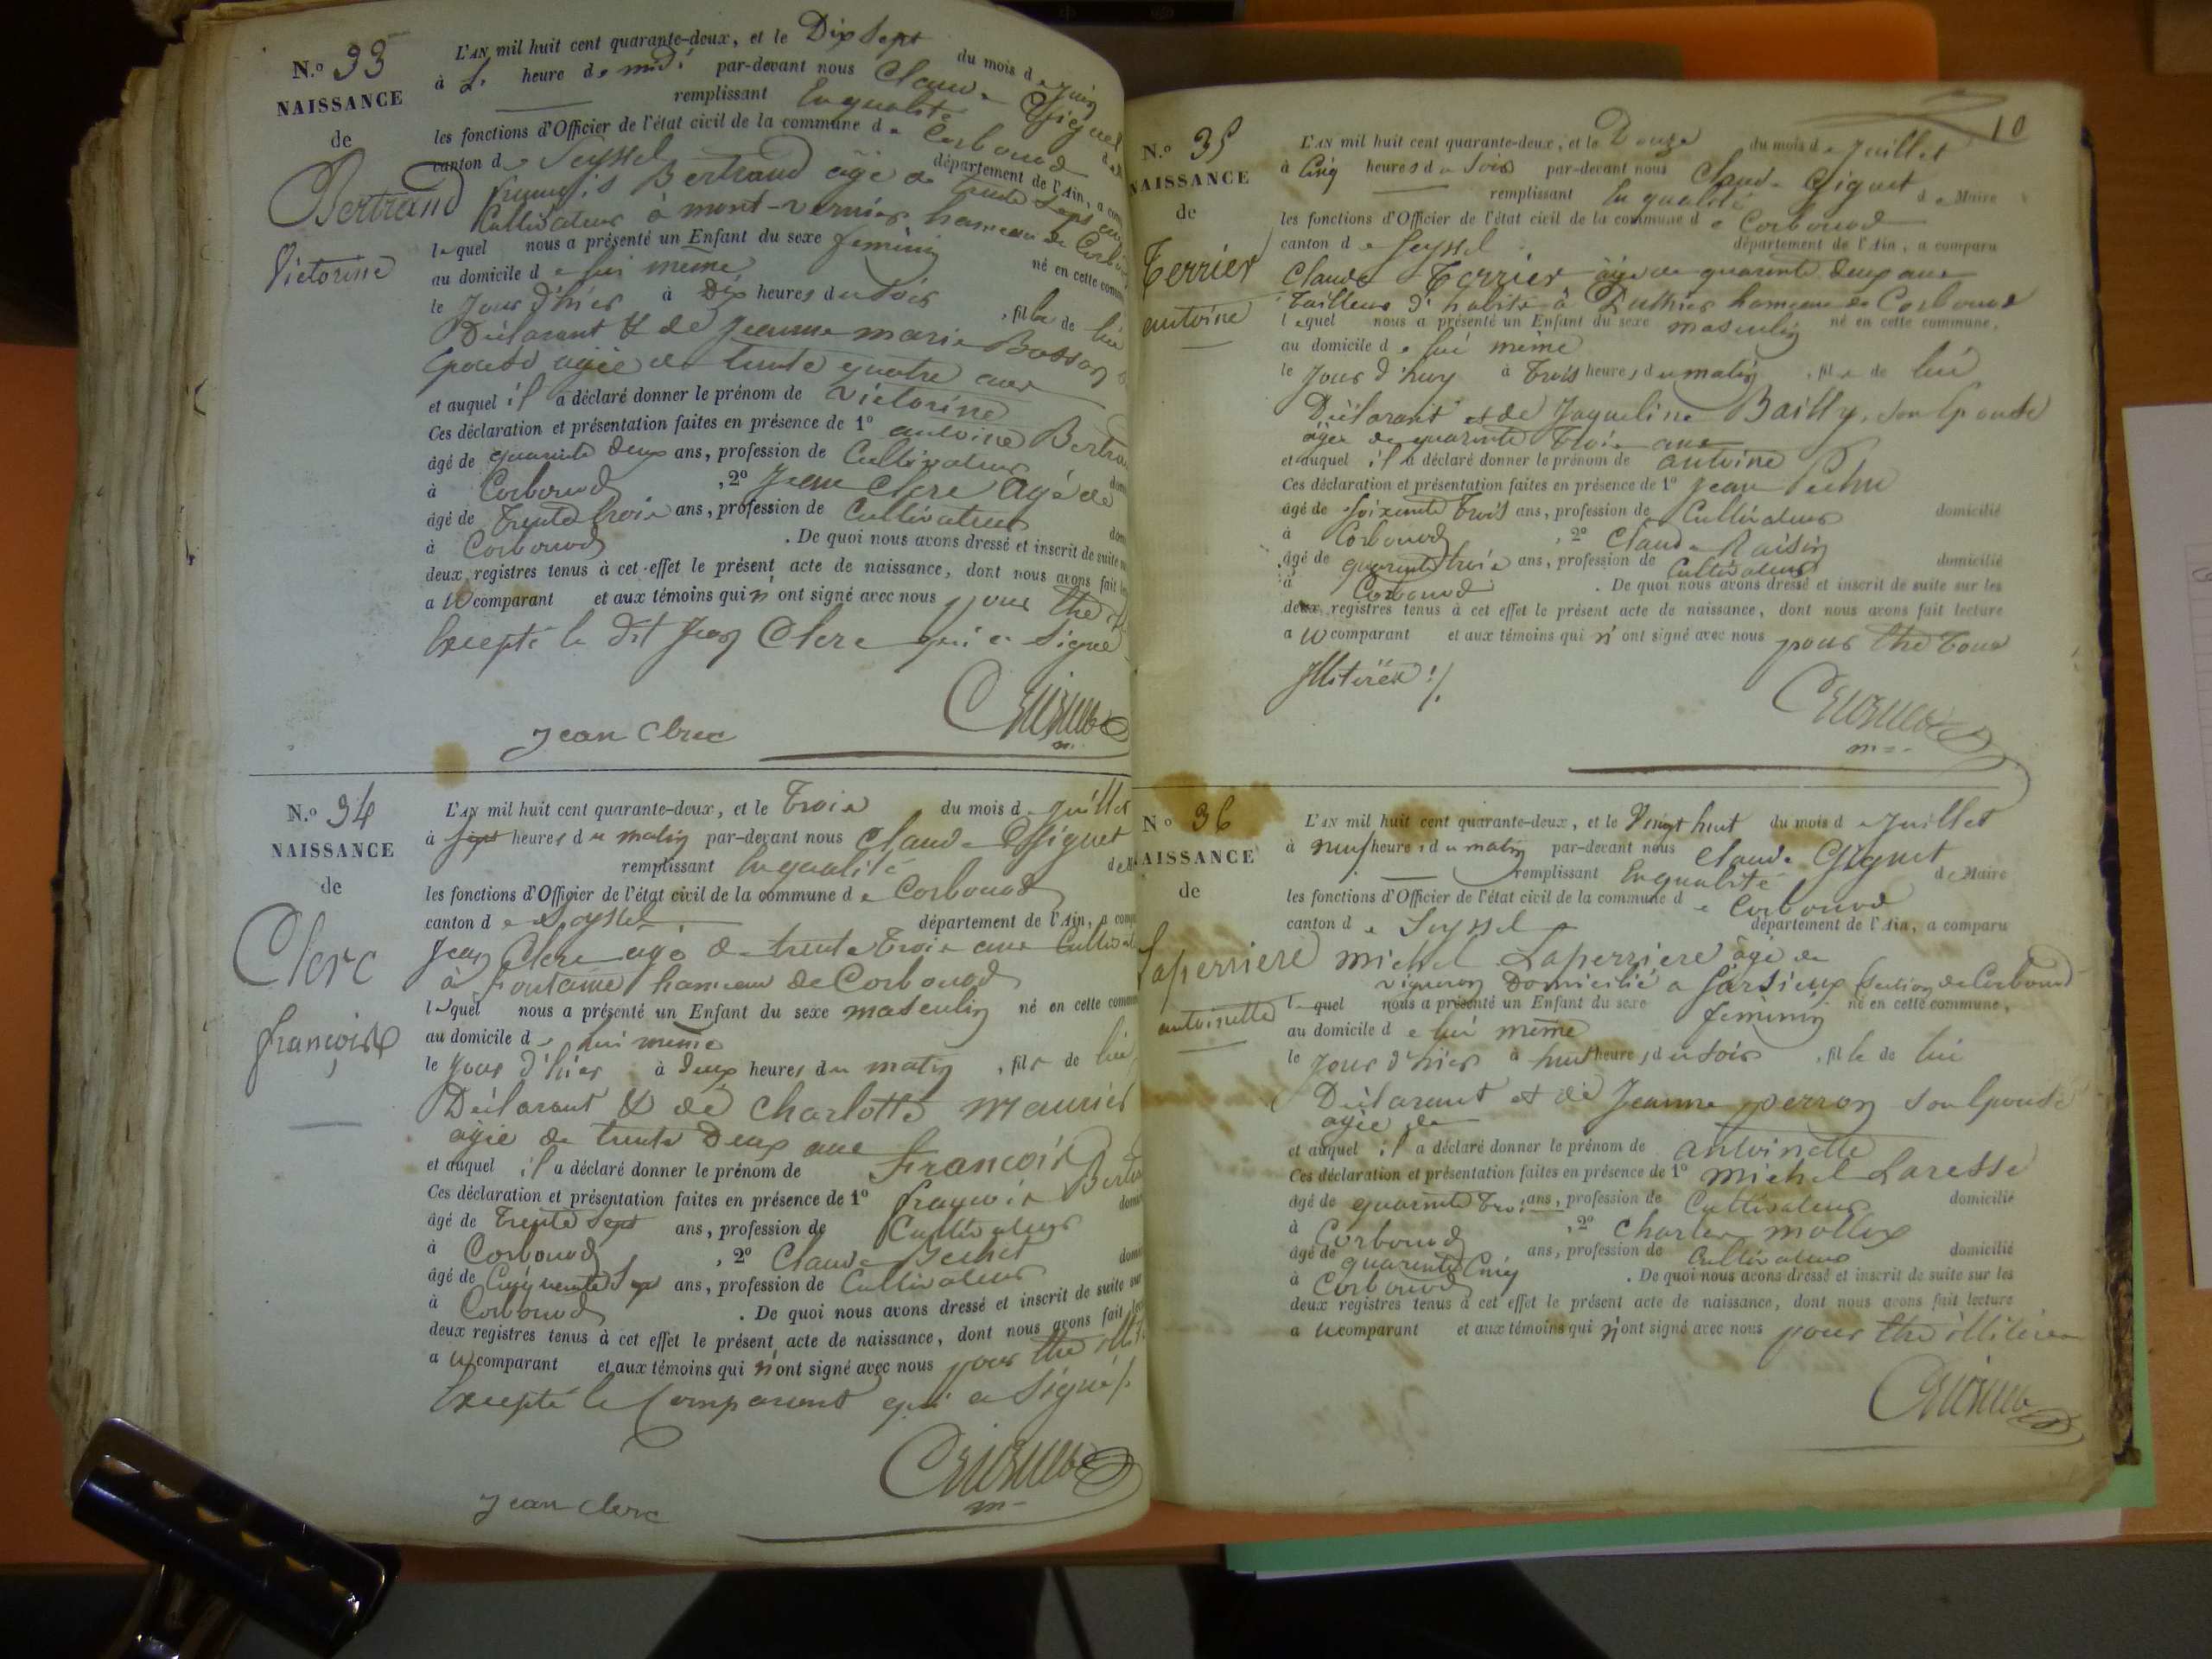 N.o 33
NAISSANCE
de
Bertrand
Victorine
L'AN mil huit cent quarante-deux, et le Dix Sept du mois de Juin
à heure de midi par-devant nous Claude Giguet
remplissant En qualité
les fonctions d'Officier de l'état civil de la commune de Corbonod
canton de Seyssel département de l'Ain, a
françois Bertrand âgé de trente Sept ans
Cultivateur à mont-vernier hameau de
lequel nous a présenté un Enfant du sexe feminin né en cette
au domicile de lui même
le Jour d'hier à Dix heures du soir, fille de lui
Déclarant & de Jeanne marie Bosson
Epouse agée de trente quatre ans
et auquel il a déclaré donner le prénom de victorine
Ces déclaration et présentation faites en présence de 1o antoine
âgé de quarante deux ans, profession de Cultivateur
à Corbonod, 2o Jean Clerc Agé de
âgé de Trente trois ans, profession de Cultivateur
à Corbonod. De quoi nous avons dressé et inscrit de suite
deux registres tenus à cet effet le présent acte de naissance, dont nous avons fait
a le comparant et aux témoins qui n'ont signé avec nous pour
Excepté le dit Jean Clerc qui a signé
Jean Clerc
N.o 34
NAISSANCE
de
Clerc
françois
L'AN mil huit cent quarante-deux, et le trois du mois de Juillet
à Sept heures du matin par-devant nous Claude Giguet
remplissant En qualité
les fonctions d'Officier de l'état civil de la commune de Corbonod
canton de Seyssel département de l'Ain, a
Jean Clerc agé de trente trois ans
à Fontaine hameau de Corbonod
lequel nous a présenté un Enfant du sexe masculin né en cette
au domicile de lui même
le Jour d'hier à deux heures du matin, fils de lui
Déclarant & de Charlotte Maurier
agée de trente Deux ans
et auquel il a déclaré donner le prénom de François
Ces déclaration et présentation faites en présence de 1o françois
âgé de Trente Sept ans, profession de Cultivateur
à Corbonod, 2o Claude
âgé de ans, profession de Cultivateur
à Corbonod. De quoi nous avons dressé et inscrit de suite sur
deux registres tenus à cet effet le présent acte de naissance, dont nous avons fait
a le comparant et aux témoins qui n'ont signé avec nous pour
Excepté le Comparant qui a signé
Jean Clerc
10
N.o 35
NAISSANCE
de
Terrier
antoine
L'AN mil huit cent quarante-deux, et le Douze du mois de Juillet
à Cinq heures du Soir par-devant nous Claude Giguet
remplissant En qualité de Maire
les fonctions d'Officier de l'état civil de la commune de Corbonod
canton de Seyssel département de l'Ain, a comparu
Claude Terrier âgé de quarante deux ans
Tailleur d'habits à hameau de Corbonod
lequel nous a présenté un Enfant du sexe masculin né en cette commune,
au domicile de lui même
le Jour d'huy à trois heures du matin, fils de lui
Déclarant et de Jaqueline Bailly, son Epouse
âgée de quarante trois ans
et auquel il a déclaré donner le prénom de antoine
Ces déclaration et présentation faites en présence de 1o Jean
âgé de soixante trois ans, profession de Cultivateur domicilié
à Corbonod, 2o Claude Raisin
âgé de quarante trois ans, profession de Cultivateur domicilié
à Corbonod. De quoi nous avons dressé et inscrit de suite sur les
deux registres tenus à cet effet le présent acte de naissance, dont nous avons fait lecture
a le comparant et aux témoins qui n'ont signé avec nous pour tous
N.o 36
NAISSANCE
de
Laperriere
antoinette
L'AN mil huit cent quarante-deux, et le Vingt huit du mois de Juillet
à neuf heures du matin par-devant nous Claude Giguet
remplissant En qualité de Maire
les fonctions d'Officier de l'état civil de la commune de Corbonod
canton de Seyssel département de l'Ain, a comparu
michel Laperriere âgé de
vigneron Domicilié a section de Corbonod
lequel nous a présenté un Enfant du sexe feminin né en cette commune,
au domicile de lui même
le Jour d'hier à huit heures du soir, fille de lui
Déclarant et de Jeanne perron son Epouse
agée de
et auquel il a déclaré donner le prénom de antoinette
Ces déclaration et présentation faites en présence de 1o michel
âgé de quarante trois ans, profession de Cultivateur domicilié
à Corbonod, 2o Charles
âgé de quarante Cinq ans, profession de Cultivateur domicilié
à Corbonod. De quoi nous avons dressé et inscrit de suite sur les
deux registres tenus à cet effet le présent acte de naissance, dont nous avons fait lecture
a le comparant et aux témoins qui n'ont signé avec nous pour